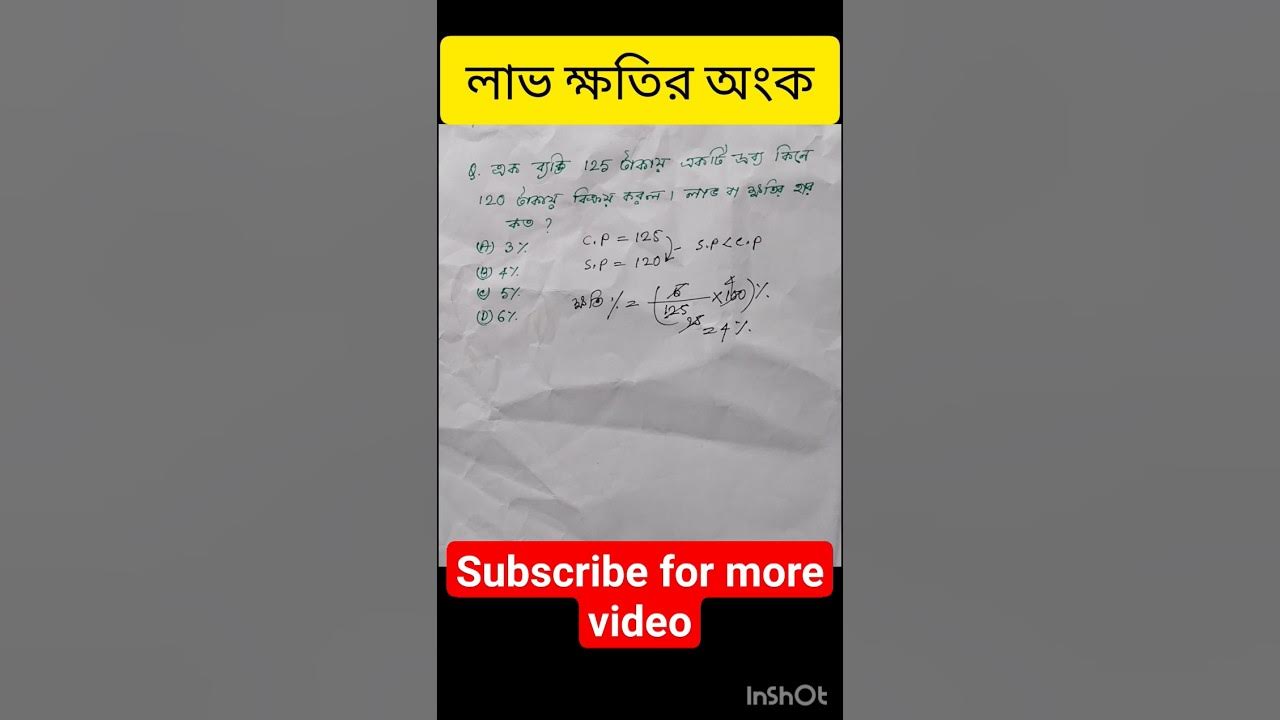 লাভ ক্ষতির অংক
Q. এক ব্যক্তি 125 টাকায় একটি দ্রব্য কিনে
120 টাকায় বিক্রয় করল। লাভ বা ক্ষতির হার
কত ?
(A) 3%
(B) 4%
(C) 5%
(D) 6%
C.P = 125
S.P = 120
S.P < C.P
ক্ষতি % = (5/125 × 100)%
25
4
= 4%
Subscribe for more
video
InShOt